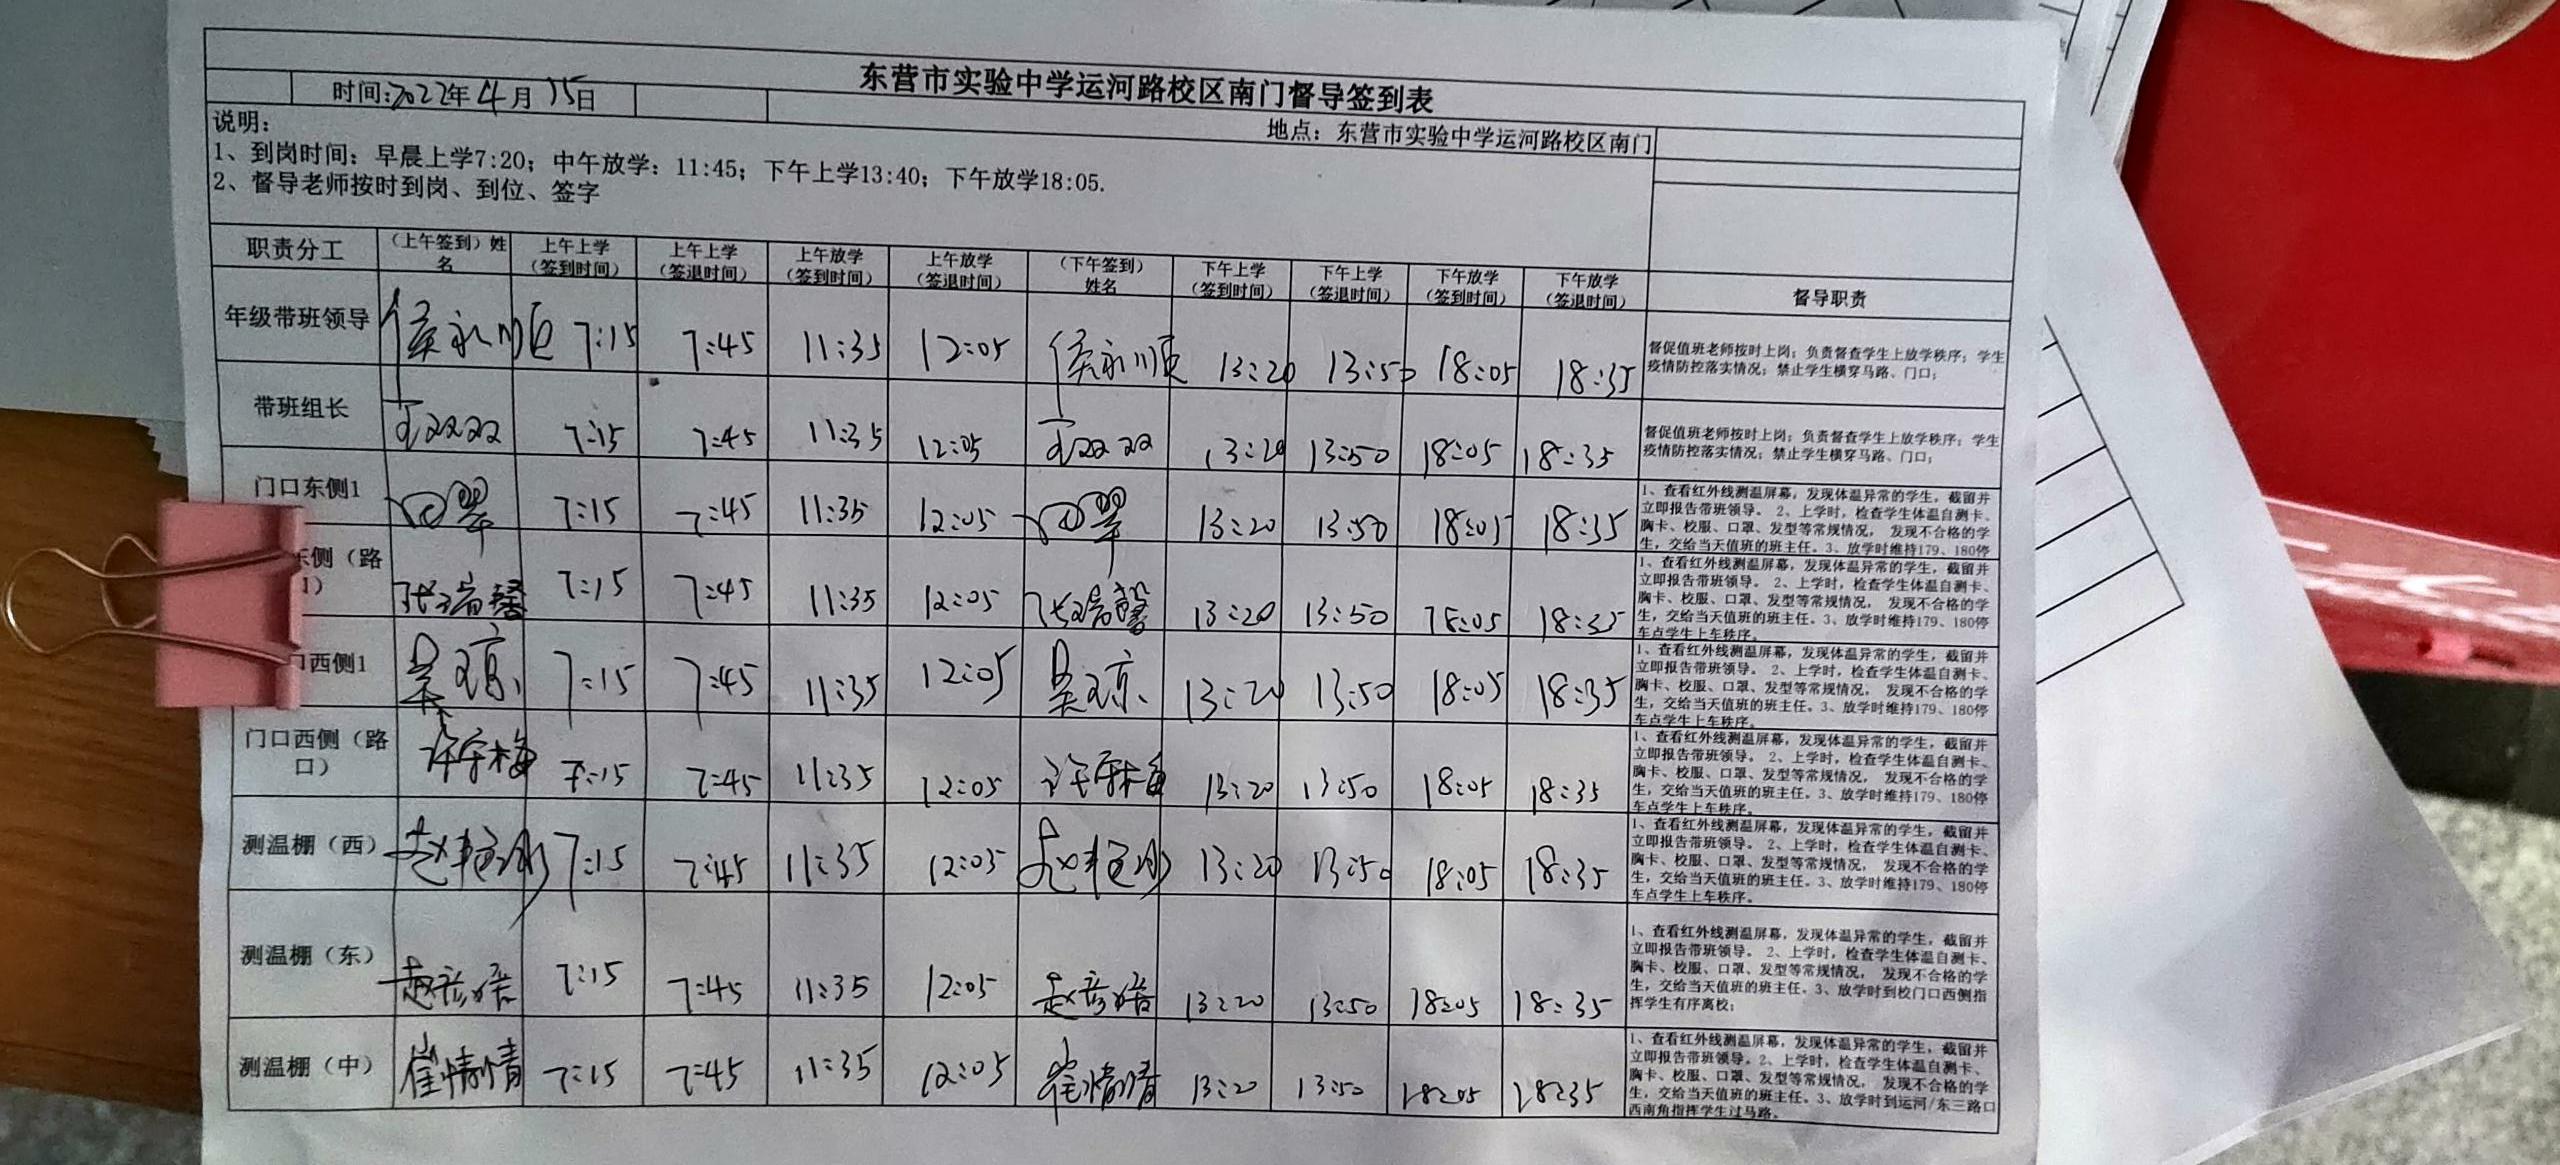 东营市实验中学运河路校区南门督导签到表
时间:2022年4月15日
地点：东营市实验中学运河路校区南门
说明：
1、到岗时间：早晨上学7:20；中午放学：11:45；下午上学13:40；下午放学18:05.
2、督导老师按时到岗、到位、签字
职责分工 （上午签到）姓名 上午上学（签到时间） 上午上学（签退时间） 上午放学（签到时间） 上午放学（签退时间） （下午签到）姓名 下午上学（签到时间） 下午上学（签退时间） 下午放学（签到时间） 下午放学（签退时间） 督导职责
年级带班领导 侯永顺 7:15 7:45 11:35 12:05 侯永顺 13:20 13:50 18:05 18:35
督促值班老师按时上岗；负责督查学生上放学秩序；学生
疫情防控落实情况；禁止学生横穿马路、门口；
带班组长 王双双 7:15 7:45 11:35 12:05 王双双 13:20 13:50 18:05 18:35
督促值班老师按时上岗；负责督查学生上放学秩序；学生
疫情防控落实情况；禁止学生横穿马路、门口；
门口东侧1 田翠 7:15 7:45 11:35 12:05 田翠 13:20 13:50 18:05 18:35
1、查看红外线测温屏幕，发现体温异常的学生，截留并
立即报告带班领导。 2、上学时，检查学生体温自测卡、
胸卡、校服、口罩、发型等常规情况， 发现不合格的学
生，交给当天值班的班主任。3、放学时维持179、180停
东侧（路 张瑞馨 7:15 7:45 11:35 12:05 张瑞馨 13:20 13:50 18:05 18:35
1、查看红外线测温屏幕，发现体温异常的学生，截留并
立即报告带班领导。 2、上学时，检查学生体温自测卡、
胸卡、校服、口罩、发型等常规情况， 发现不合格的学
生，交给当天值班的班主任。3、放学时维持179、180停
车点学生上车秩序。
口西侧1 吴琼 7:15 7:45 11:35 12:05 吴琼 13:20 13:50 18:05 18:35
1、查看红外线测温屏幕，发现体温异常的学生，截留并
立即报告带班领导。 2、上学时，检查学生体温自测卡、
胸卡、校服、口罩、发型等常规情况， 发现不合格的学
生，交给当天值班的班主任。3、放学时维持179、180停
车点学生上车秩序。
门口西侧（路口） 许字梅 7:15 7:45 11:35 12:05 许字梅 13:20 13:50 18:05 18:35
1、查看红外线测温屏幕，发现体温异常的学生，截留并
立即报告带班领导。 2、上学时，检查学生体温自测卡、
胸卡、校服、口罩、发型等常规情况， 发现不合格的学
生，交给当天值班的班主任。3、放学时维持179、180停
车点学生上车秩序。
测温棚（西） 7:15 7:45 11:35 12:05 13:20 13:50 18:05 18:35
1、查看红外线测温屏幕，发现体温异常的学生，截留并
立即报告带班领导。 2、上学时，检查学生体温自测卡、
胸卡、校服、口罩、发型等常规情况， 发现不合格的学
生，交给当天值班的班主任。3、放学时维持179、180停
车点学生上车秩序。
测温棚（东） 7:15 7:45 11:35 12:05 13:20 13:50 18:05 18:35
1、查看红外线测温屏幕，发现体温异常的学生，截留并
立即报告带班领导。 2、上学时，检查学生体温自测卡、
胸卡、校服、口罩、发型等常规情况， 发现不合格的学
生，交给当天值班的班主任。3、放学时到校门口西侧指
挥学生有序离校；
测温棚（中） 崔情情 7:15 7:45 11:35 12:05 崔情情 13:20 13:50 18:05 18:35
1、查看红外线测温屏幕，发现体温异常的学生，截留并
立即报告带班领导。2、上学时，检查学生体温自测卡、
胸卡、校服、口罩、发型等常规情况， 发现不合格的学
生，交给当天值班的班主任。3、放学时到运河/东三路口
西南角指挥学生过马路。